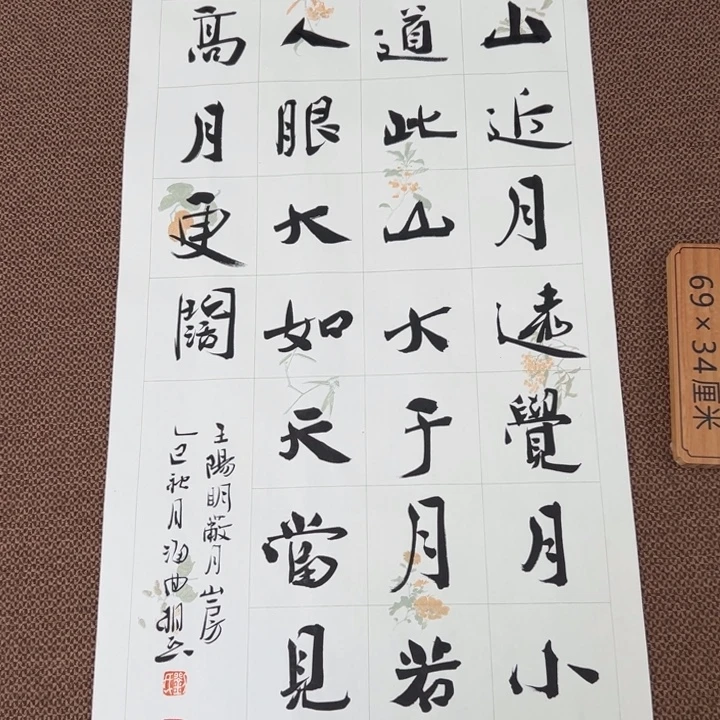 山近月遠覺月小
道此山大于月若
人眼大如天當見
高月更闊
王陽明蔽月山房
乙巳秋月海曲
69×34厘米